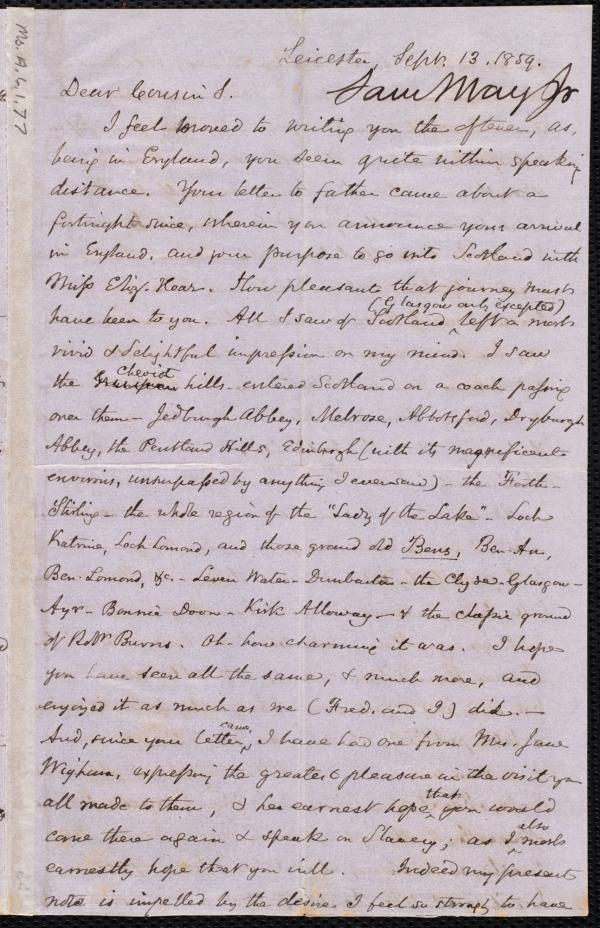 Ms. A. 6.1.77
Leicester, Sept. 13. 1859.
Dear Cousin S. Sam May Jr
I feel moved to writing you the oftener, as,
being in England, you seem quite within speaking
distance. Your letter to father came about a
fortnight since, wherein you announce your arrival
in England, and your purpose to go into Scotland with
Miss Eliz. Hoar. How pleasant that journey must
(Glasgow only excepted)
have been to you. All I saw of Scotland ‸ left a most
vivid & delightful impression on my mind. I saw
Cheviot
the hills - entered Scotland on a coach passing
over them - Jedburgh Abbey, Melrose, Abbotsford, Dryburgh
Abbey, the Pentland Hills, Edinbrogh (with its magnificent
environs, unsurpassed by anything I ever saw) - the Forth -
Stirling - the whole region of the "Lady of the Lake" - Loch
Katrine, Loch Lomond, and those grand old Bens, Ben-An,
Ben-Lomond, &c. - Leven Water - Dumbarton - the Clyde - Glasgow -
Ayr - Bonnie Doon - Kirk Alloway - & the classic ground
of Robt Burns. Oh - how charming it was. I hope
you have seen all the same, & much more, and
enjoyed it as much as we (Fred. and I) did. -
came,
And, since your letter ‸ I have had one from Mrs. Jane
Wigham, expressing the greatest pleasure in the visit you
that
all made to them, & her earnest hope ‸ you would
also
come there again & speak on Slavery; as I ‸ most
earnestly hope that you will. Indeed my present
note is impelled by the desire I feel so strongly to have